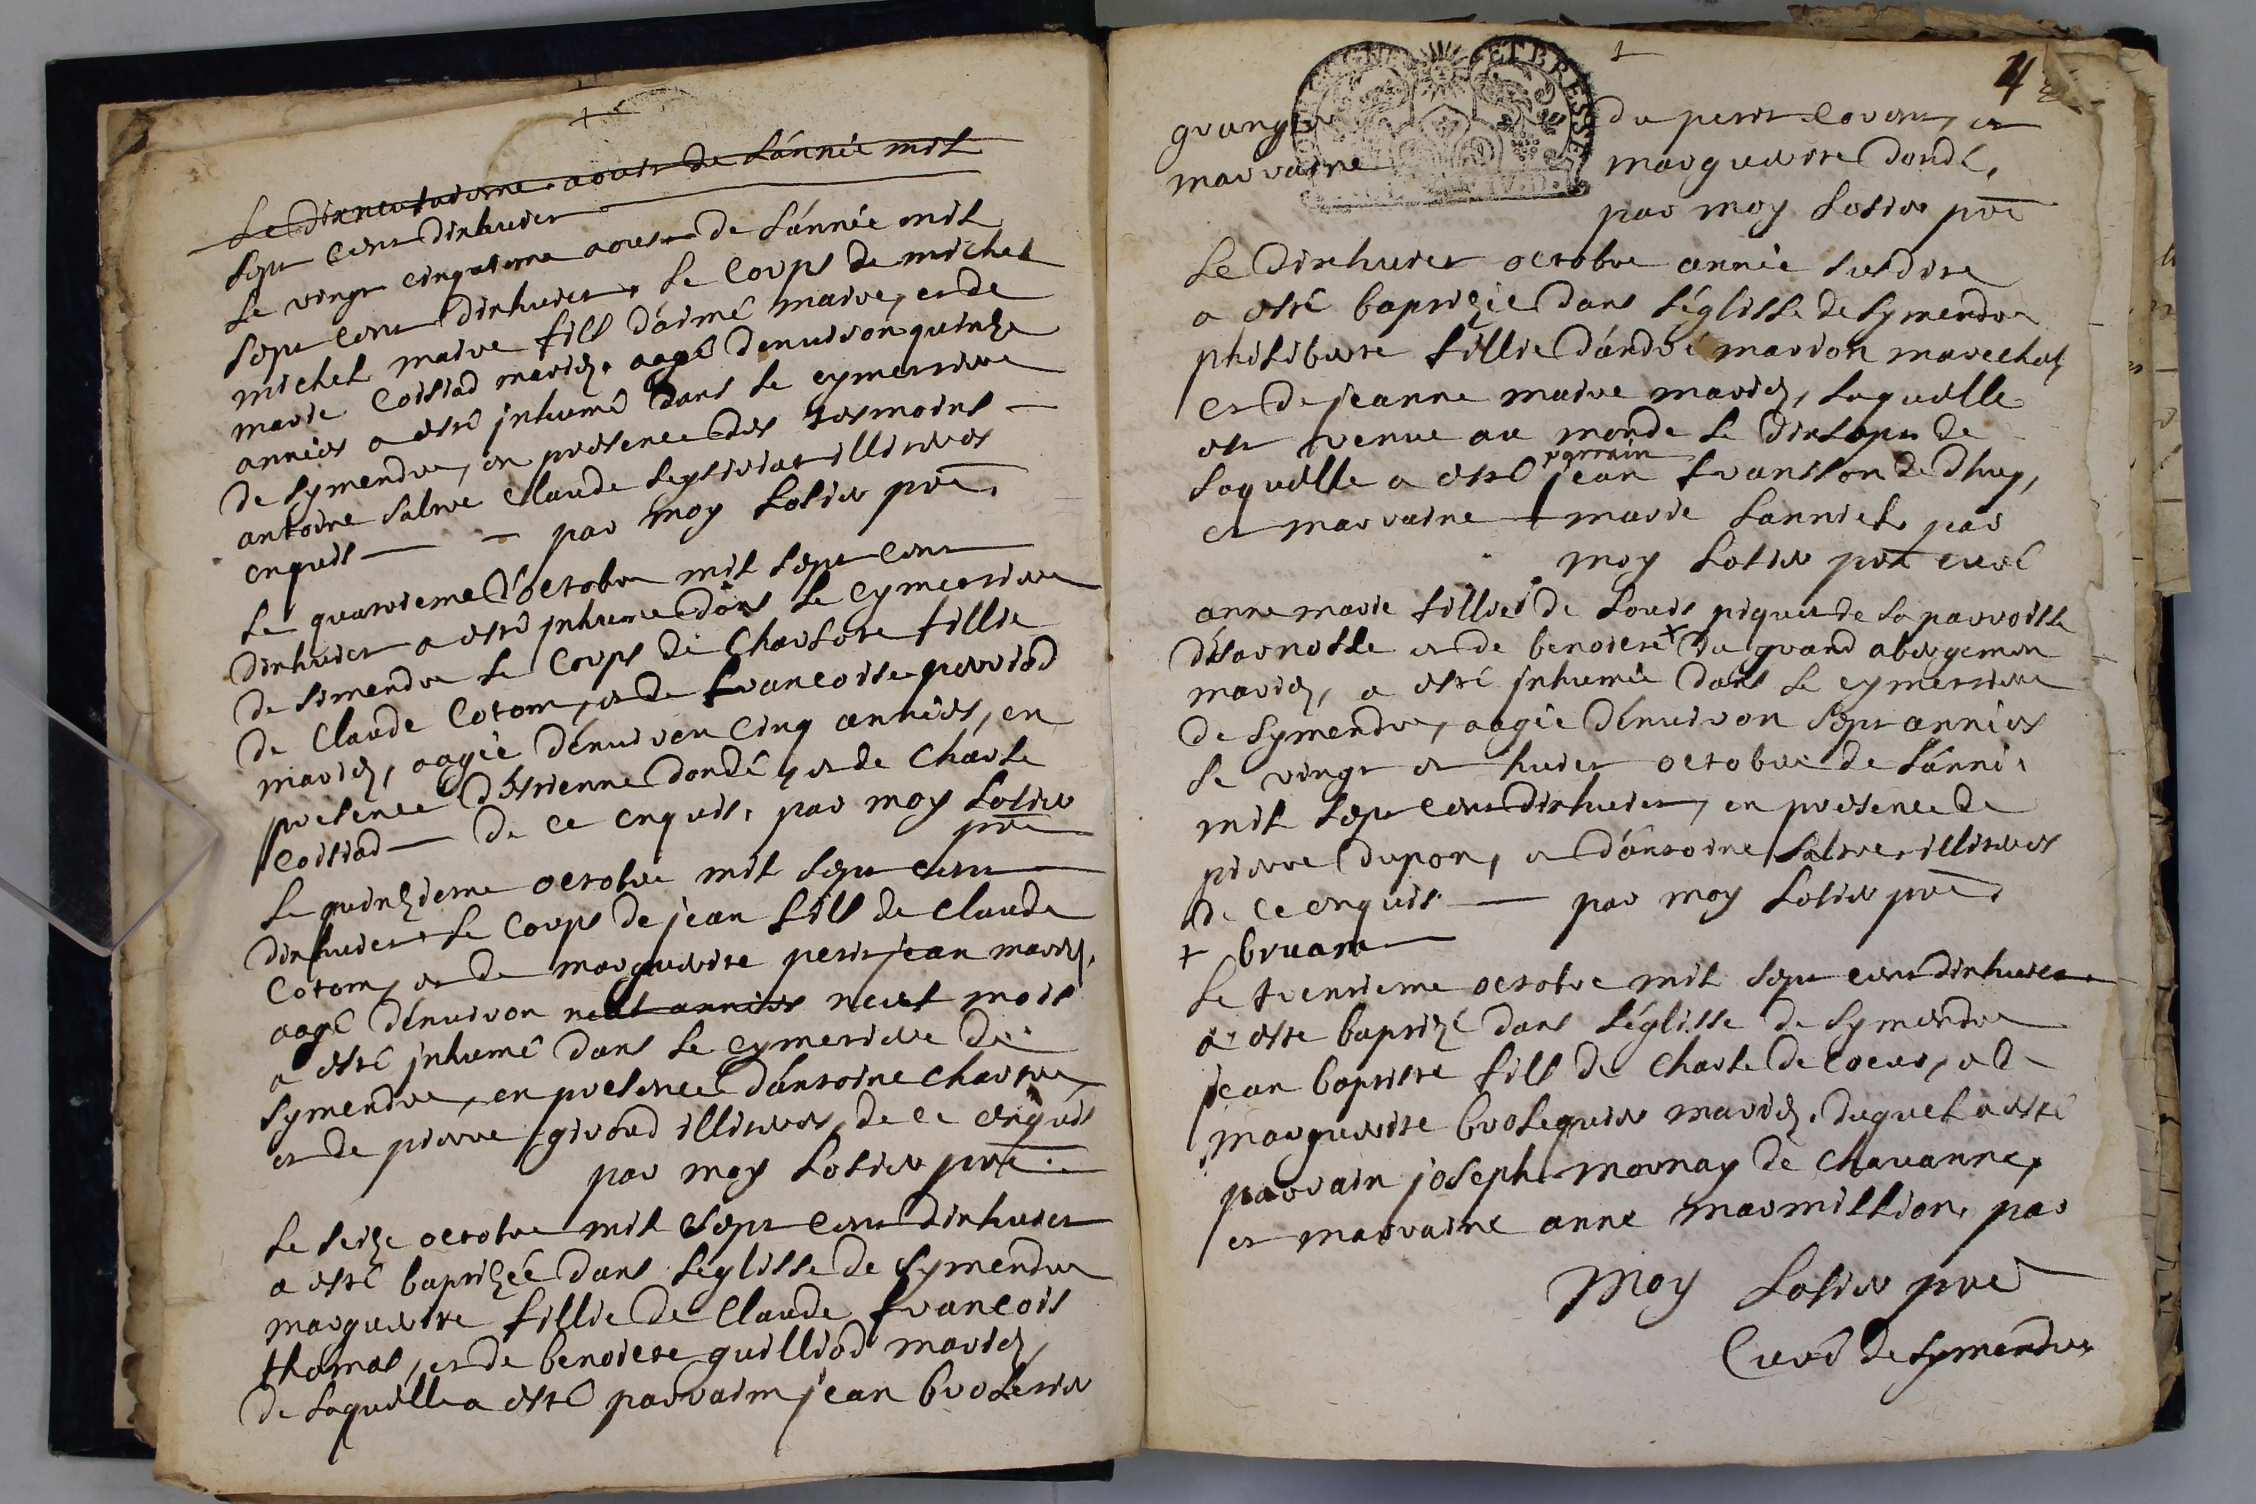 Le dixneufvieme aoust de l'année mil
sept cent dixhuict
Le vingt cinquieme aoust de l'année mil
sept cent dixhuict, le corps de michel
michel maire fils d'aimé maire, et de
marie Coisiad mariez, aagé denuiron quinze
années a esté jnhumé dans le cymettiere
de symendre, en presence des tesmoins
antoine salme Claude illiteres
enquis par moy Solier pre.
Le quatrieme d'octobre mil sept cent
dixhuict a esté jnhumé dans le Cymettiere
de simendre le corps de Charlote fillie
de Claude Cotom, et de francoise perriod
mariez, aagée dénuiron cinq années, en
presence d'estienne dondé, et de Charle
Coisiad de ce enquis, par moy Solier
pre
Le quinzieme octobre mil sept cent
dixhuict le corps de jean fils de Claude
Cotom, et de marguerite petitjean mariez,
aagé dénuiron neuf années neuf mois
a esté jnhumé dans le cymetiere de
symendre, en presence d'antoine chartre,
et de pierre giroud illiteres, de ce enquis
par moy Solier pre.
Le seize octobre mil sept cent dixhuict
a esté baptizée dans l'églisse de symendre
marguerite fillie de Claude francois
thomas, et de benoiete guilliod mariez,
de laquelle a esté parraim jean broLerier
4
granger du petit Covent, et
marraine marguerite dondé,
par moy Solier pre
Le dixhuict octobre année susdite
a esté baptizée dans l'églisse de symendre
philiberte fillie d'andré marion marechal
et de jeanne maire mariez, laquelle
est venue au monde le dixsept de
laquelle a esté parrain jean fransson de dhuy,
et marraine marie Lanniel, par
moy Solier pre curé
anne marie fillie de Louis piquet de la parroisse
désarnosse et de benoiete + du grand abergemen
mariez, a esté jnhumée dans le cymettiere
de symendre, aagée dénuiron sept années
le vingt et huict octobre de l'année
mil sept cent dixhuict, en presence de
pierre dupon, et d'antoine salme, illiteres
de ce enquis par moy Solier pre.
+ bruan
Le trentieme octobre mil sept cent dixhuict
a esté baptizé dans l'églisse de symendre
jean baptiste fils de Charle de Coeur, et de
marguerite broLequier mariez, duquel a esté
parrain joseph mornay de Chauanne,
et marraine anne marmillion, par
Moy Solier pre
Curé de symendre